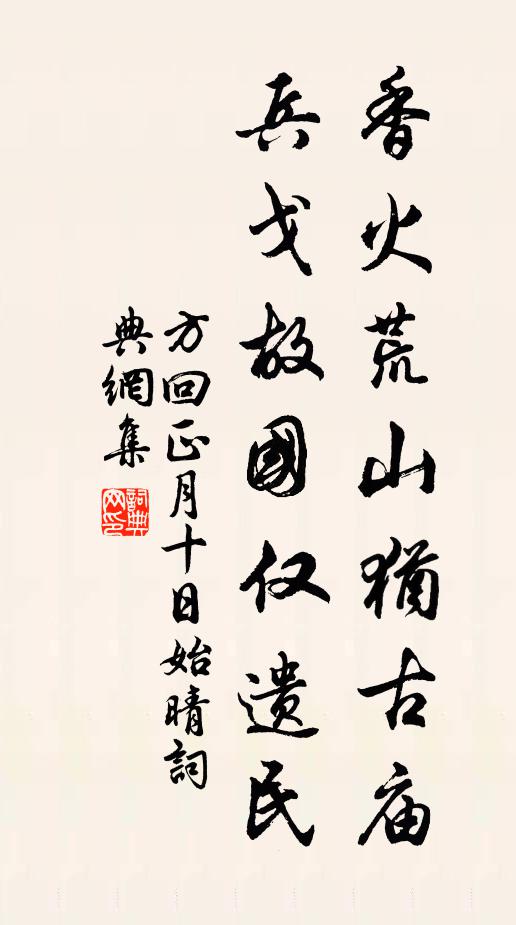 香火荒山猶古庙
兵戈故國仅遗民
方回正月十日始晴詞
典網集
詞典网印